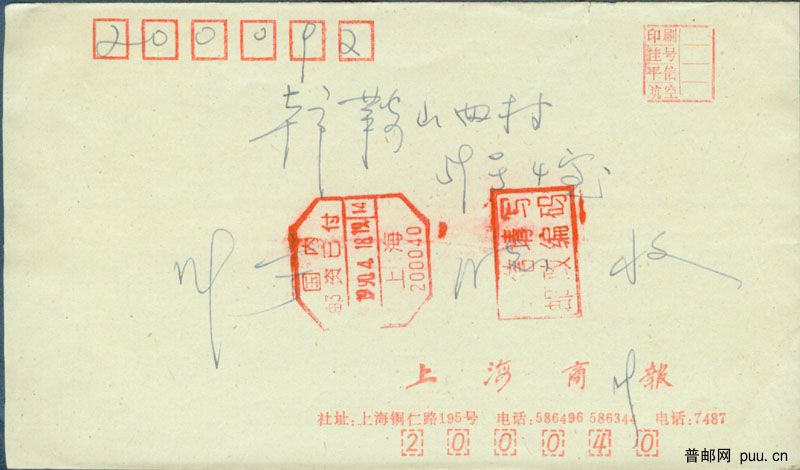 200092
印刷
挂号
平信
航空
本市鞍山四村
号4室
国内
邮资已付
1990.4.18
上海
200040
请写
邮政编码
收
上海商報
社址:上海铜仁路195号 电话:586496 586344 电话:7487
200040
普邮网 puu.cn